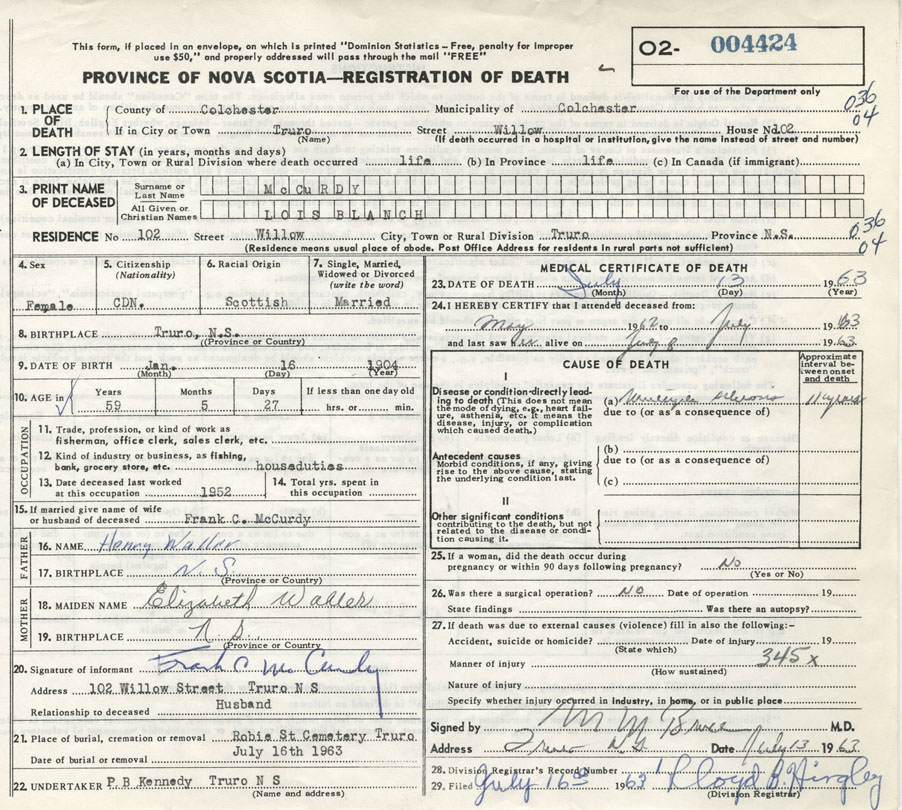 This form, if placed in an envelope, on which is printed "Dominion Statistics – Free, penalty for improper
use $50," and properly addressed will pass through the mail "FREE"
O2- 004424
PROVINCE OF NOVA SCOTIA—REGISTRATION OF DEATH
For use of the Department only
1. PLACE OF DEATH
County of Colchester Municipality of Colchester
036
04
If in City or Town Truro Street Willow House No 102
(Name) (If death occurred in a hospital or institution, give the name instead of street and number)
2. LENGTH OF STAY (in years, months and days)
(a) In City, Town or Rural Division where death occurred life (b) In Province life (c) In Canada (if immigrant)
3. PRINT NAME OF DECEASED
Surname or Last Name McCuRDY
All Given or Christian Names LOIS BLANCH
RESIDENCE No 102 Street Willow City, Town or Rural Division Truro Province N.S.
036
04
(Residence means usual place of abode. Post Office Address for residents in rural parts not sufficient)
4. Sex
Female
5. Citizenship (Nationality)
CDN.
6. Racial Origin
Scottish
7. Single, Married, Widowed or Divorced (write the word)
Married
8. BIRTHPLACE Truro, N.S.
(Province or Country)
9. DATE OF BIRTH Jan. 16 1904
(Month) (Day) (Year)
10. AGE in
Years Months Days If less than one day old
59 5 27 hrs. or min.
OCCUPATION
11. Trade, profession, or kind of work as
fisherman, office clerk, sales clerk, etc.
12. Kind of industry or business, as fishing,
bank, grocery store, etc. houseduties
13. Date deceased last worked
at this occupation 1952
14. Total yrs. spent in
this occupation
15. If married give name of wife
or husband of deceased Frank C. McCurdy
FATHER
16. NAME Henry Waller
17. BIRTHPLACE N.S.
(Province or Country)
MOTHER
18. MAIDEN NAME Elizabeth Waller
19. BIRTHPLACE N.S.
(Province or Country)
20. Signature of informant Frank C McCurdy
Address 102 Willow Street Truro N S
Relationship to deceased Husband
21. Place of burial, cremation or removal Robie St Cemetery Truro
Date of burial or removal July 16th 1963
22. UNDERTAKER P B Kennedy Truro N S
(Name and address)
MEDICAL CERTIFICATE OF DEATH
23. DATE OF DEATH July 13 1963
(Month) (Day) (Year)
24. I HEREBY CERTIFY that I attended deceased from:
May 1962 to July 1963
and last saw her alive on July 8 1963.
CAUSE OF DEATH
Approximate interval between onset and death
I
Disease or condition directly leading to death (This does not mean
the mode of dying, e.g., heart failure, asthenia, etc. It means the
disease, injury, or complication
which caused death.)
(a) Multiple sclerosis 11 years
due to (or as a consequence of)
Antecedent causes
Morbid conditions, if any, giving
rise to the above cause, stating
the underlying condition last.
(b)
due to (or as a consequence of)
(c)
II
Other significant conditions
contributing to the death, but not
related to the disease or condition causing it.
25. If a woman, did the death occur during
pregnancy or within 90 days following pregnancy? No
(Yes or No)
26. Was there a surgical operation? No Date of operation 19
State findings Was there an autopsy?
27. If death was due to external causes (violence) fill in also the following:-
Accident, suicide or homicide? Date of injury 19
(State which)
345x
Manner of injury
(How sustained)
Nature of injury
Specify whether injury occurred in industry, in home, or in public place
Signed by M.D.
Address Truro N.S. Date July 13 1963.
28. Division Registrar's Record Number
29. Filed July 16 1963 Lloyd B. Hingley
(Division Registrar)